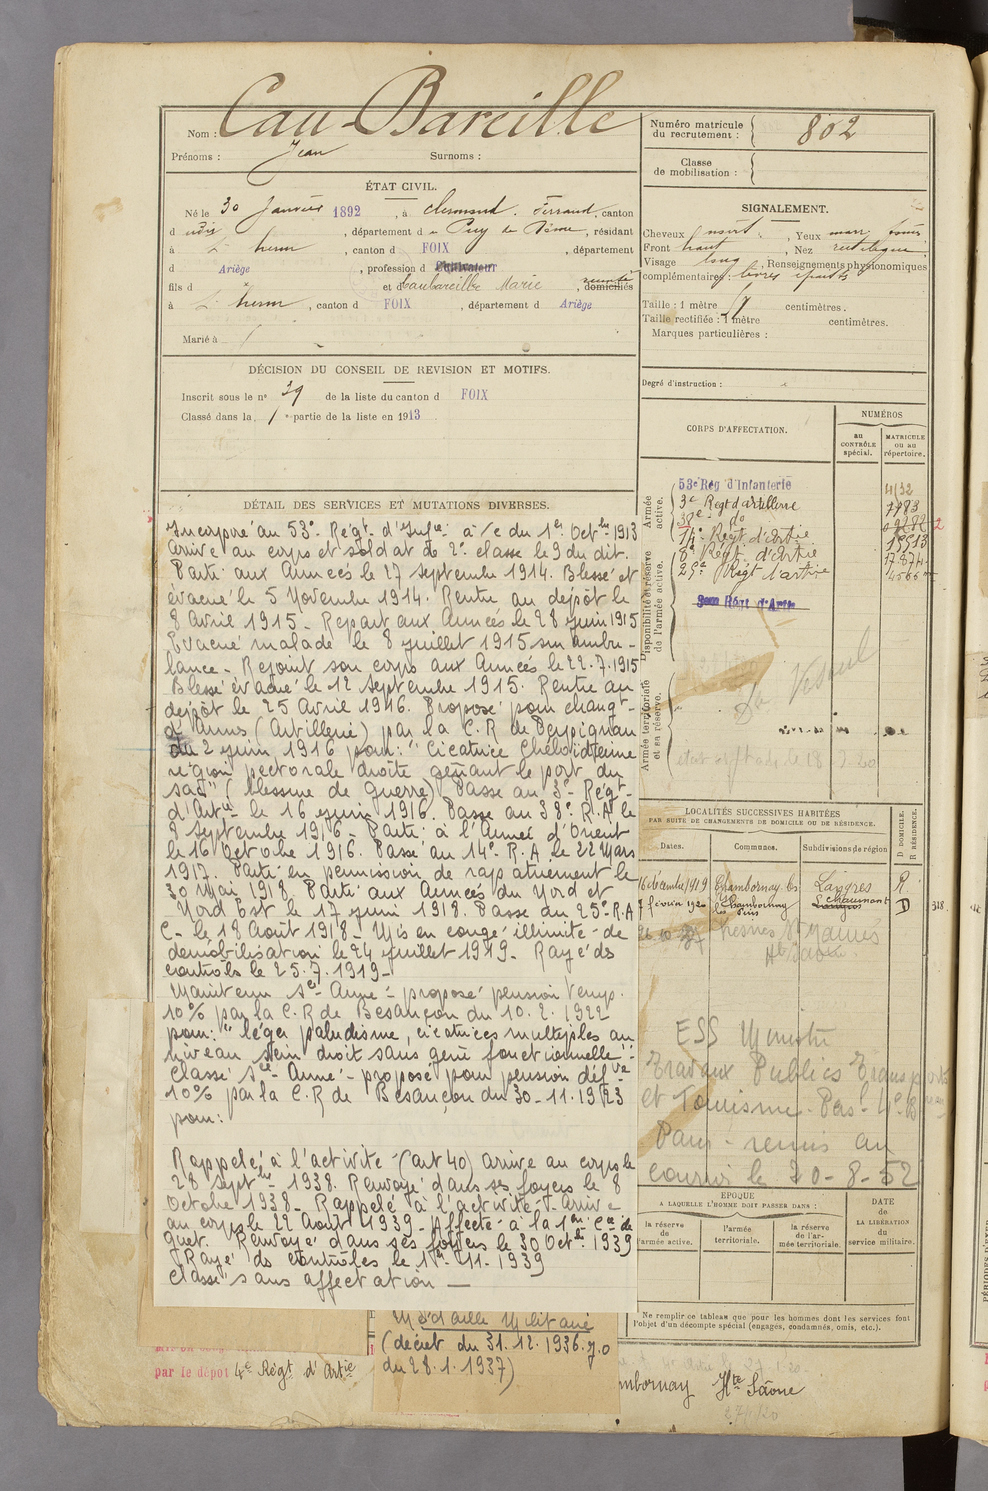 Nom : Cau-Bareille
Prénoms : Jean Surnoms :
Numéro matricule du recrutement : 802
Classe de mobilisation :
ÉTAT CIVIL.
Né le 30 Janvier 1892, à Clermont-Ferrand, canton
d udit, département d u Puy de Dôme, résidant
à L'herm, canton d FOIX, département
d Ariège, profession d Cultivateur
fils d x et de Caubareille Marie, domiciliés
à L'herm, canton d FOIX, département d Ariège
Marié à
SIGNALEMENT.
Cheveux, Yeux marr
Front haut, Nez rectiligne
Visage long, Renseignements physionomiques
complémentaires : lèvres épaisses
Taille : 1 mètre centimètres.
Taille rectifiée : 1 mètre centimètres.
Marques particulières :
Degré d'instruction :
DÉCISION DU CONSEIL DE REVISION ET MOTIFS.
Inscrit sous le n° 39 de la liste du canton d FOIX
Classé dans la 1e partie de la liste en 1913
CORPS D'AFFECTATION.
NUMÉROS
au CONTRÔLE spécial.
MATRICULE ou au répertoire.
Armée active.
53e Rég d'Infanterie 4132
3e Régt d'artillerie 7783
38e do
14e Régt d'Artie 15913
8e Régt d'Artie
25e Régt d'artie
Disponibilité et réserve de l'armée active.
3ème Régt d'Artie
Armée territoriale et sa réserve.
Vesoul
DÉTAIL DES SERVICES ET MUTATIONS DIVERSES.
Incorporé au 53e Régt d'Infie à/c du 1er Octbre 1913
arrive au corps et soldat de 2e classe le 9 du dit.
Parti aux Armées le 27 septembre 1914. Blessé et
évacué le 5 Novembre 1914. Rentre au dépôt le
8 avril 1915. Repart aux Armées le 28 juin 1915
Evacué malade le 8 juillet 1915 sur ambu-
lance. Rejoint son corps aux Armées le 22.7.1915
Blessé évacué le 12 septembre 1915. Rentre au
dépôt le 25 Avril 1916. Proposé pour changt
d'armes (Artillerie) par la C.R de Perpignan
du 2 juin 1916 pour: "Cicatrice Chéloïdienne
région pectorale droite gênant le port du
sac" (blessure de guerre) Passé au 3e Régt
d'Artie le 16 juin 1916. Passé au 38e R.A le
8 septembre 1916. Parti à l'Armée d'Orient
le 16 Octobre 1916. Passé au 14e R.A le 22 Mars
1917. Parti en permission de rapatriement le
30 Mai 1918. Parti aux Armées du Nord et
Nord Est le 17 juin 1918. Passé au 25e R.A
C. le 18 Août 1918. Mis en congé illimité de
démobilisation le 24 juillet 1919. Rayé des
contrôles le 25.7.1919-
Maintenu Sce Armé - proposé pension temp.
10% par la C.R de Besançon du 10.2.1922
pour: "léger paludisme, cicatrices multiples au
niveau sein droit sans gêne fonctionnelle".
Classé Sce Armé - proposé pour pension défve
10% par la C.R de Besançon du 30-11-1923
pour:
Rappelé à l'activité (art 40) arrive au corps le
28 septbre 1938. Renvoyé dans ses foyers le 8
Octobre 1938. Rappelé à l'activité. Arrivé
au corps le 22 Août 1939. Affecté à la 1ère Cie de
Guet. Renvoyé dans ses foyers le 30 Octbre 1939
Rayé ds contrôles le 1er 11. 1939
Classé "sans affectation —
LOCALITÉS SUCCESSIVES HABITÉES
PAR SUITE DE CHANGEMENTS DE DOMICILE OU DE RÉSIDENCE.
Dates. Communes. Subdivisions de région D DOMICILE. R RÉSIDENCE.
16 décembre 1919 Chambornay les Langres R
7 février 1920 Chambornay les Pins Langres Chaumont D
318
ESS Ministre
Travaux Publics Transports
et Tourisme. Persl 4e Bureau
Paris - remis au
courrier le 20-8-52
EPOQUE
A LAQUELLE L'HOMME DOIT PASSER DANS :
la réserve de l'armée active.
l'armée territoriale.
la réserve de l'armée territoriale.
DATE de LA LIBÉRATION du service militaire.
Ne remplir ce tableau que pour les hommes dont les services font
l'objet d'un décompte spécial (engagés, condamnés, omis, etc.).
Médaille Militaire
(décret du 31.12.1936. J.o
du 28.1.1937)
par le dépôt 4e Régt d'Artie
mbornay Hte Saône